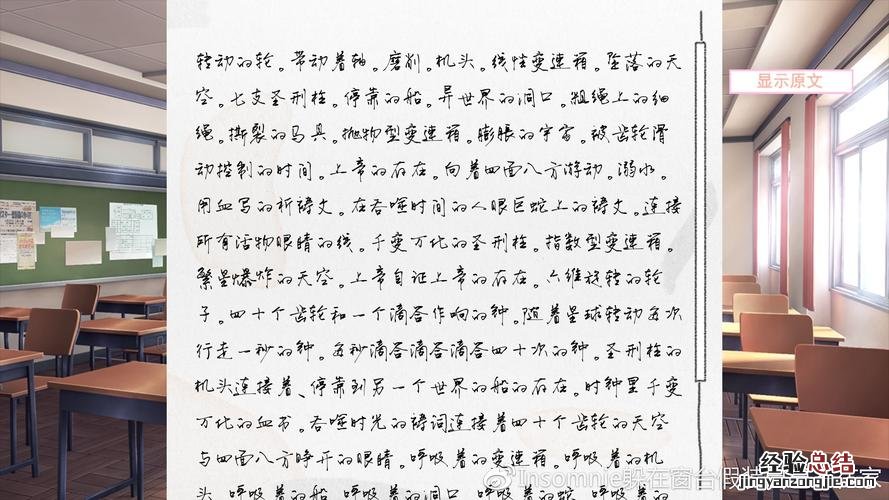 转动的轮。带动着轴。磨削。机头。线性变速箱。坠落的天
空。七支圣刑柱。停靠的船。异世界的洞口。粗绳上的细
绳。撕裂的马具。抛物型变速箱。膨胀的宇宙。被齿轮滑
动控制的时间。上帝的存在。向着四面八方游动。溺水。
用血写的祈祷文。在吞噬时间的人眼巨蛇上的祷文。连接
所有活物眼睛的线。千变万化的圣刑柱。指数型变速箱。
繁星爆炸的天空。上帝自证上帝的存在。六维旋转的轮
子。四十个齿轮和一个滴答作响的钟。随着星球转动每次
行走一秒的钟。每秒滴答滴答滴答四十次的钟。圣刑柱的
机头连接着、停靠到另一个世界的船的存在。时钟里千变
万化的血书。吞噬时光的祷词连接着四十个齿轮的天空
与四面八方睁开的眼睛。呼吸着的变速箱。呼吸着的机
头。呼吸着的船。呼吸着的洞口。呼吸着的蛇。呼吸着的
显示原文
Insomnie躲在窗台假装
经验总结
jingyanzongjie.com